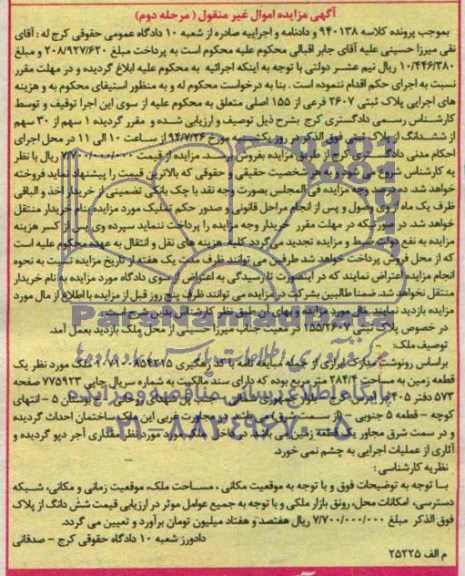 آگهی مزایده اموال غیر منقول ( مرحله دوم)
بموجب پرونده کلاسه ۹۴۰۱۳۸ و دادنامه و اجراییه صادره از شعبه ۱۰ دادگاه عمومی حقوقی کرج له : آقای
نقی میرزا حسینی علیه آقای جابر اقبالی محکوم علیه محکوم است به پرداخت مبلغ ۲۰۸/۹۲۷/۶۲۰ و مبلغ
۱۰/۴۴۶/۳۸۰ ریال نیم عشر دولتی با توجه به اینکه اجرائیه به محکوم علیه ابلاغ گردیده و در مهلت مقرر
نسبت به اجرای حکم اقدام ننموده است . بنا به درخواست محکوم له و به منظور استیفای محکوم به و هزینه
های اجرایی پلاک ثبتی ۲۶۰۷ فرعی از ۱۵۵ اصلی متعلق به محکوم علیه از سوی این اجرا توقیف و توسط
کارشناس رسمی دادگستری کرج بشرح ذیل توصیف و ارزیابی شده و مقرر گردیده ۱ سهم از ۳۰ سهم
از ششدانگ از پلاک ثبتی فوق الذکر در روز یکشنبه مورخ ۹۴/۷/۲۶ از ساعت ۱۰ الی ۱۱ در محل اجرای
احکام مدنی دادگستری کرج از طریق مزایده بفروش برسد. مزایده از قیمت ۷/۷۰۰/۰۰۰/۰۰۰ ریال با نظر
به کارشناس شروع می شود و هر شخصیت حقیقی و حقوقی که بالاترین قیمت را پیشنهاد نماید فروخته
خواهد شد. ده درصد وجه مزایده فی المجلس بصورت وجه نقد یا چک بانکی تضمینی از خریدار اخذ و الباقی
ظرف یک ماه از وی وصول و پس از انجام مراحل قانونی و صدور حکم تملیک مورد مزایده بنام خریدار منتقل
خواهد شد. در صورتیکه در مهلت مقرر خریدار وجه مزایده را پرداخت ننماید سپرده وی پس از کسر هزینه
مزایده به نفع دولت ضبط و مزایده تجدید می گردد کلیه هزینه های نقل و انتقال به عهده محکوم علیه است
که از محل فروش پرداخت خواهد شد طرفین می توانند ظرف مدت یک هفته از تاریخ مزایده نسبت به نحوه
انجام مزایده اعتراض نمایند که در اینصورت تا رسیدگی به اعتراض از سوی دادگاه مورد مزایده به نام خریدار
منتقل نخواهد شد. ضمنا طالبین بشرکت در مزایده می توانند ظرف پنج روز قبل از مزایده با اطلاع از مال مورد
مزایده بازدید نمایند. مال مورد مزایده و بهای آن طبق نظر کارشناس بدین شرح است.
در خصوص پلاک ثبتی ۱۵۵/۲۶۰۷ در معیت جناب میرزا حسینی از محل ملک بازدید بعمل آمد.
توصیف ملک:
براساس رونوشت مدارک ابرازی از جمله مبایعه نامه با کد رهگیری ملک مورد نظر یک
قطعه زمین به مساحت ۲۸۴/۳ متر مربع بوده که دارای سند مالکیت به شماره سریال چاپی ۷۷۵۹۲۳ صفحه
۵۷۳ دفتر ۴۰۵ انتهای کوچه - قطعه ۵ جنوبی می باشد. در مجاورت غربی این ملک ساختمان احداث گردیده
و در سمت شرق مجاور یک قطعه زمین می باشد. در داخل ملک مورد نظر مقداری آجر دپو گردیده و
آثاری از عملیات اجرایی به چشم نمی خورد.
نظریه کارشناسی :
با توجه به توضیحات فوق و با توجه به موقعیت مکانی ، مساحت ملک، موقعیت زمانی و مکانی، شبکه
دسترسی، امکانات محل، رونق بازار ملکی و با توجه به جمیع عوامل موثر در ارزیابی قیمت شش دانگ از پلاک
فوق الذکر مبلغ ۷/۷۰۰/۰۰۰/۰۰۰ ریال هفتصد و هفتاد میلیون تومان برآورد و تعیین می گردد.
دادورز شعبه ۱۰ دادگاه حقوقی کرج - صدقانی
م الف ۲۵۲۲۵
ParsNamadData
۰۲۱-۸۸۳۴۹۶۷۰-۵